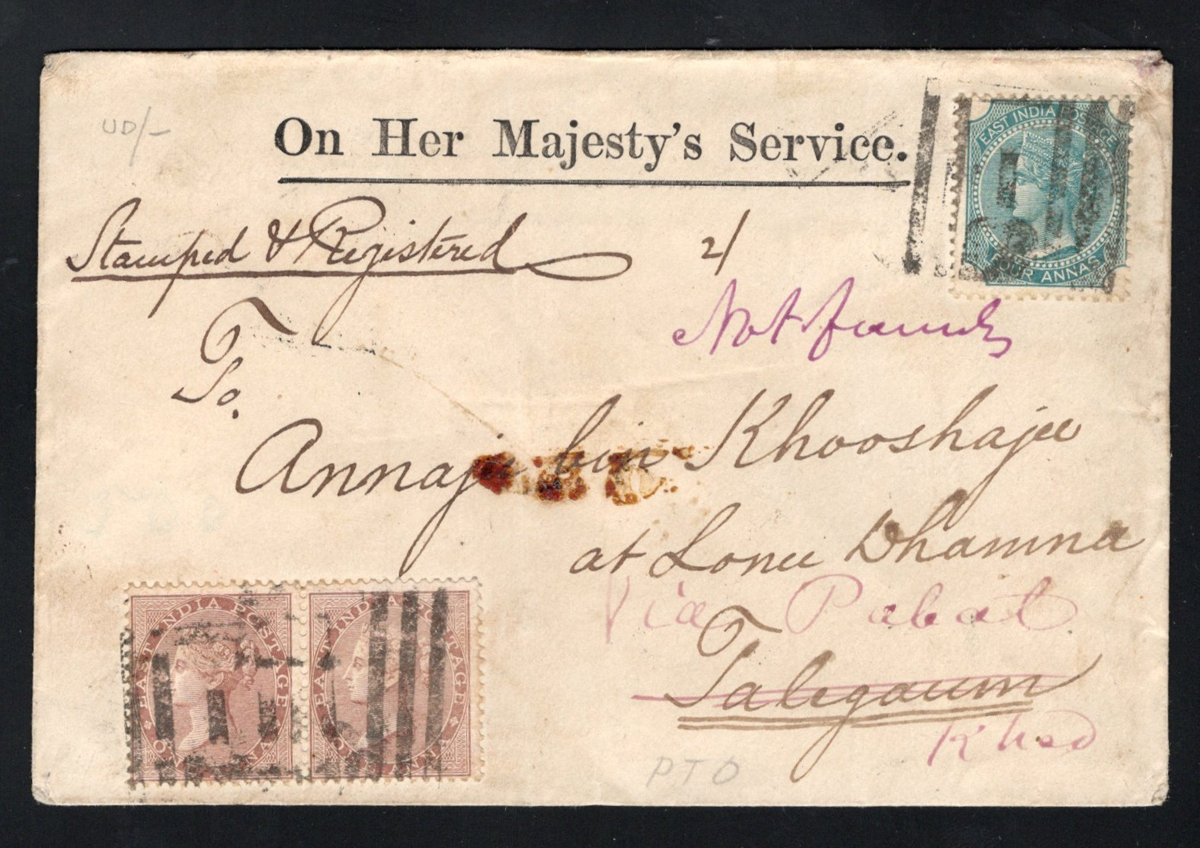 UD/-
On Her Majesty's Service.
EAST INDIA POSTAGE
FOUR ANNAS
Stamped & Registered
2/
Not found
To.
Annajee bin Khooshajee
at Lonee Dhamna
Via Pabal
Talegaum
Khed
EAST INDIA POSTAGE
EAST INDIA POSTAGE
PTO